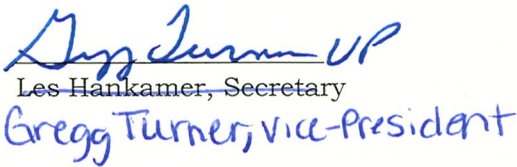 Gregg Turner VP
Les Hankamer, Secretary
Gregg Turner, Vice-President